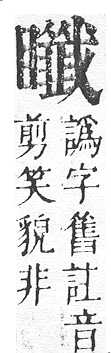 譌字舊註音
剪笑貌非